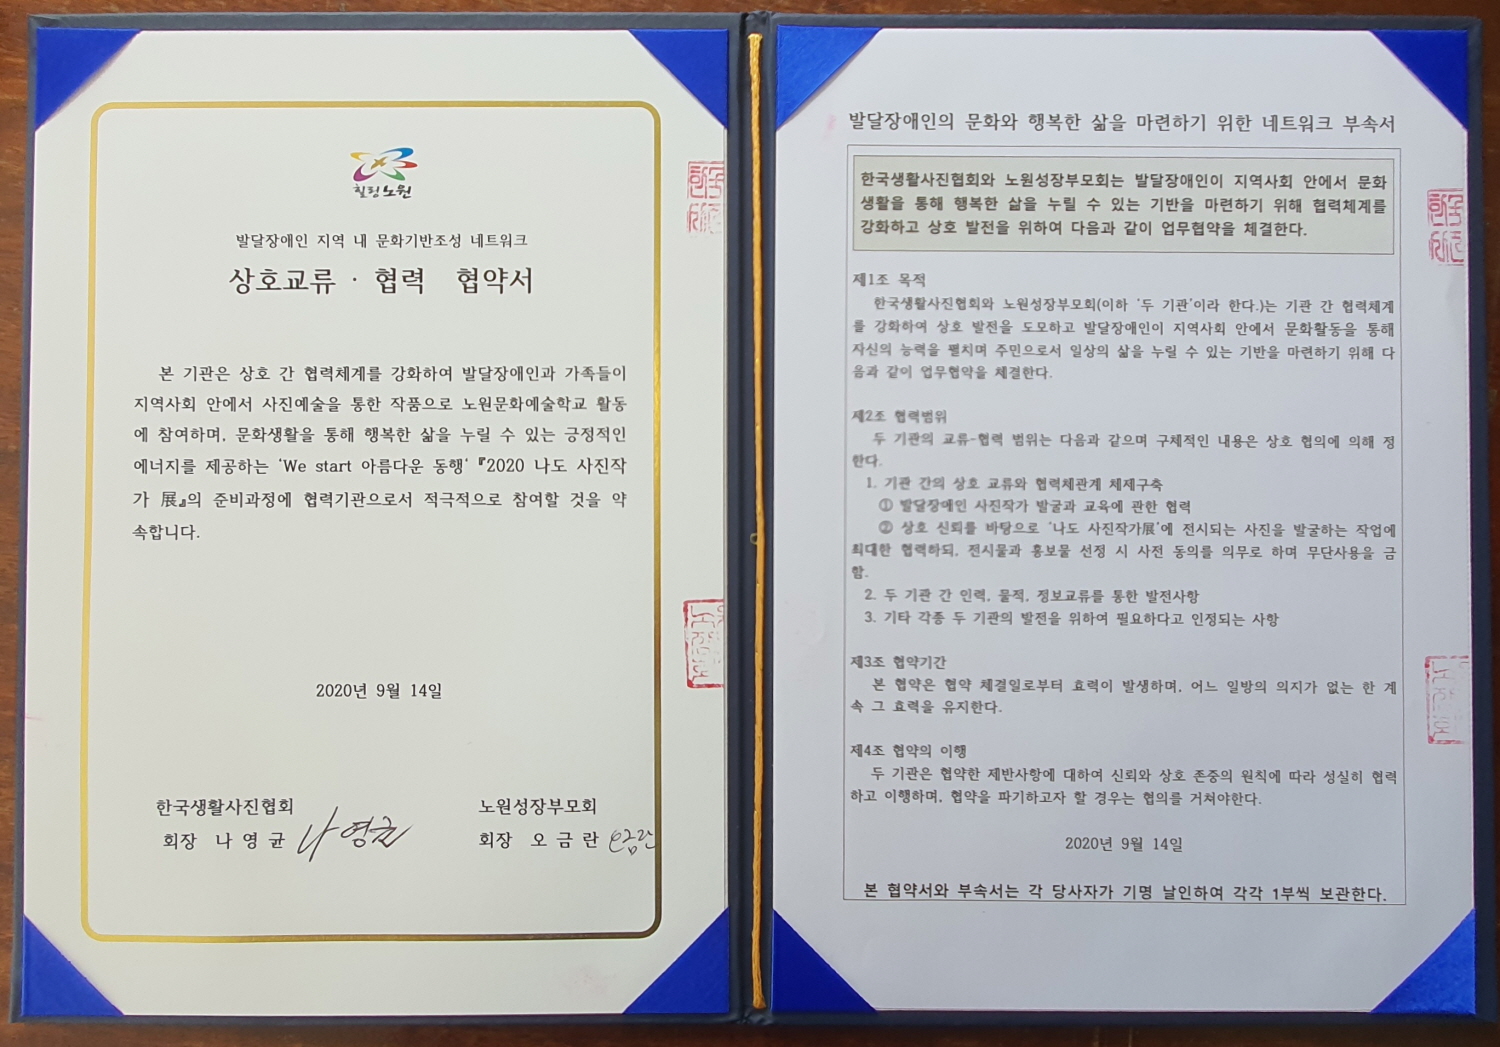 힐링노원
발달장애인 지역 내 문화기반조성 네트워크
상호교류 · 협력 협약서
본 기관은 상호 간 협력체계를 강화하여 발달장애인과 가족들이
지역사회 안에서 사진예술을 통한 작품으로 노원문화예술학교 활동
에 참여하며, 문화생활을 통해 행복한 삶을 누릴 수 있는 긍정적인
에너지를 제공하는 'We start 아름다운 동행' 『2020 나도 사진작
가 展』의 준비과정에 협력기관으로서 적극적으로 참여할 것을 약
속합니다.
2020년 9월 14일
한국생활사진협회
회장 나 영 균 나영균
노원성장부모회
회장 오 금 란 오금란
발달장애인의 문화와 행복한 삶을 마련하기 위한 네트워크 부속서
한국생활사진협회와 노원성장부모회는 발달장애인이 지역사회 안에서 문화
생활을 통해 행복한 삶을 누릴 수 있는 기반을 마련하기 위해 협력체계를
강화하고 상호 발전을 위하여 다음과 같이 업무협약을 체결한다.
제1조 목적
한국생활사진협회와 노원성장부모회(이하 '두 기관'이라 한다.)는 기관 간 협력체계
를 강화하여 상호 발전을 도모하고 발달장애인이 지역사회 안에서 문화활동을 통해
자신의 능력을 펼치며 주민으로서 일상의 삶을 누릴 수 있는 기반을 마련하기 위해 다
음과 같이 업무협약을 체결한다.
제2조 협력범위
두 기관의 교류-협력 범위는 다음과 같으며 구체적인 내용은 상호 협의에 의해 정
한다.
1. 기관 간의 상호 교류와 협력체관계 체제구축
① 발달장애인 사진작가 발굴과 교육에 관한 협력
② 상호 신뢰를 바탕으로 '나도 사진작가展'에 전시되는 사진을 발굴하는 작업에
최대한 협력하되, 전시물과 홍보물 선정 시 사전 동의를 의무로 하며 무단사용을 금
함.
2. 두 기관 간 인력, 물적, 정보교류를 통한 발전사항
3. 기타 각종 두 기관의 발전을 위하여 필요하다고 인정되는 사항
제3조 협약기간
본 협약은 협약 체결일로부터 효력이 발생하며, 어느 일방의 의지가 없는 한 계
속 그 효력을 유지한다.
제4조 협약의 이행
두 기관은 협약한 제반사항에 대하여 신뢰와 상호 존중의 원칙에 따라 성실히 협력
하고 이행하며, 협약을 파기하고자 할 경우는 협의를 거쳐야한다.
2020년 9월 14일
본 협약서와 부속서는 각 당사자가 기명 날인하여 각각 1부씩 보관한다.